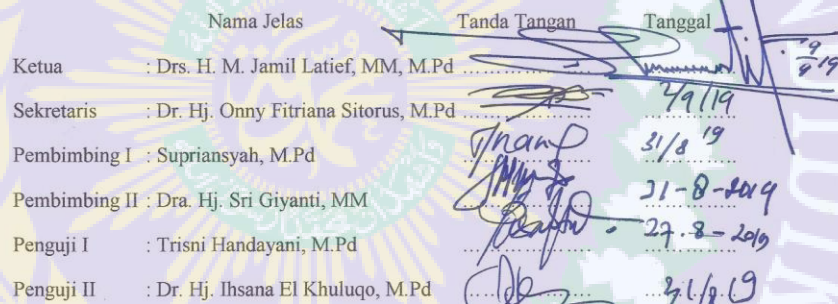 Nama Jelas Tanda Tangan Tanggal
Ketua : Drs. H. M. Jamil Latief, MM, M.Pd ........ 9/9 19
Sekretaris : Dr. Hj. Onny Fitriana Sitorus, M.Pd ........ 4/9/19
Pembimbing I : Supriansyah, M.Pd ........ 31/8 19
Pembimbing II : Dra. Hj. Sri Giyanti, MM ........ 31-8-2019
Penguji I : Trisni Handayani, M.Pd ........ 27.8-2019
Penguji II : Dr. Hj. Ihsana El Khuluqo, M.Pd ........